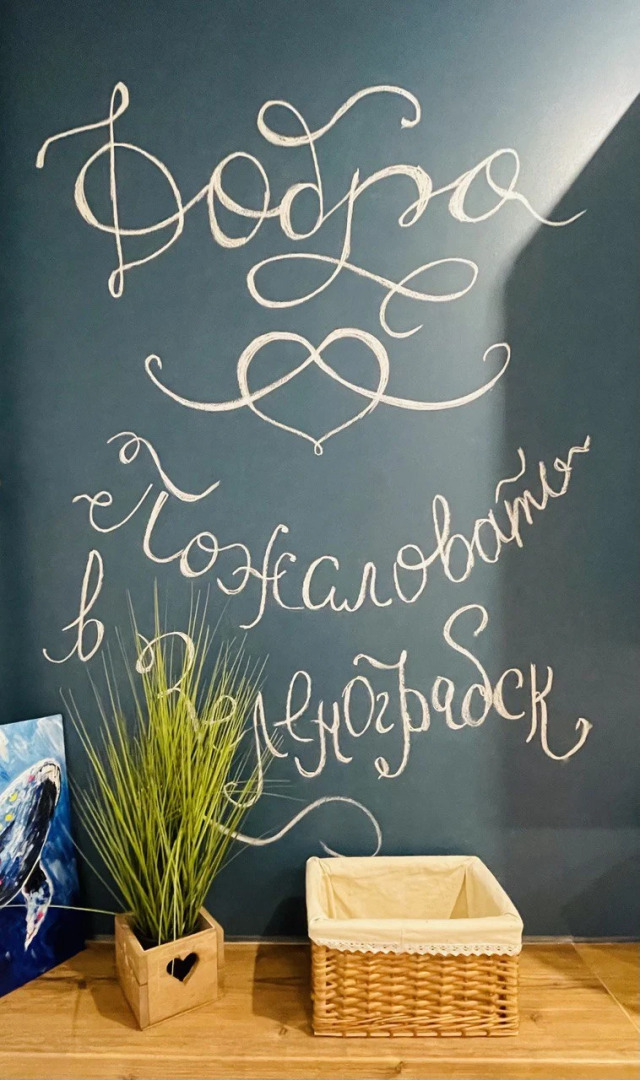 Добро
Пожаловать
в Зеленоградск